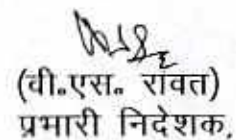 (वी.एस. रावत)
प्रभारी निदेशक.